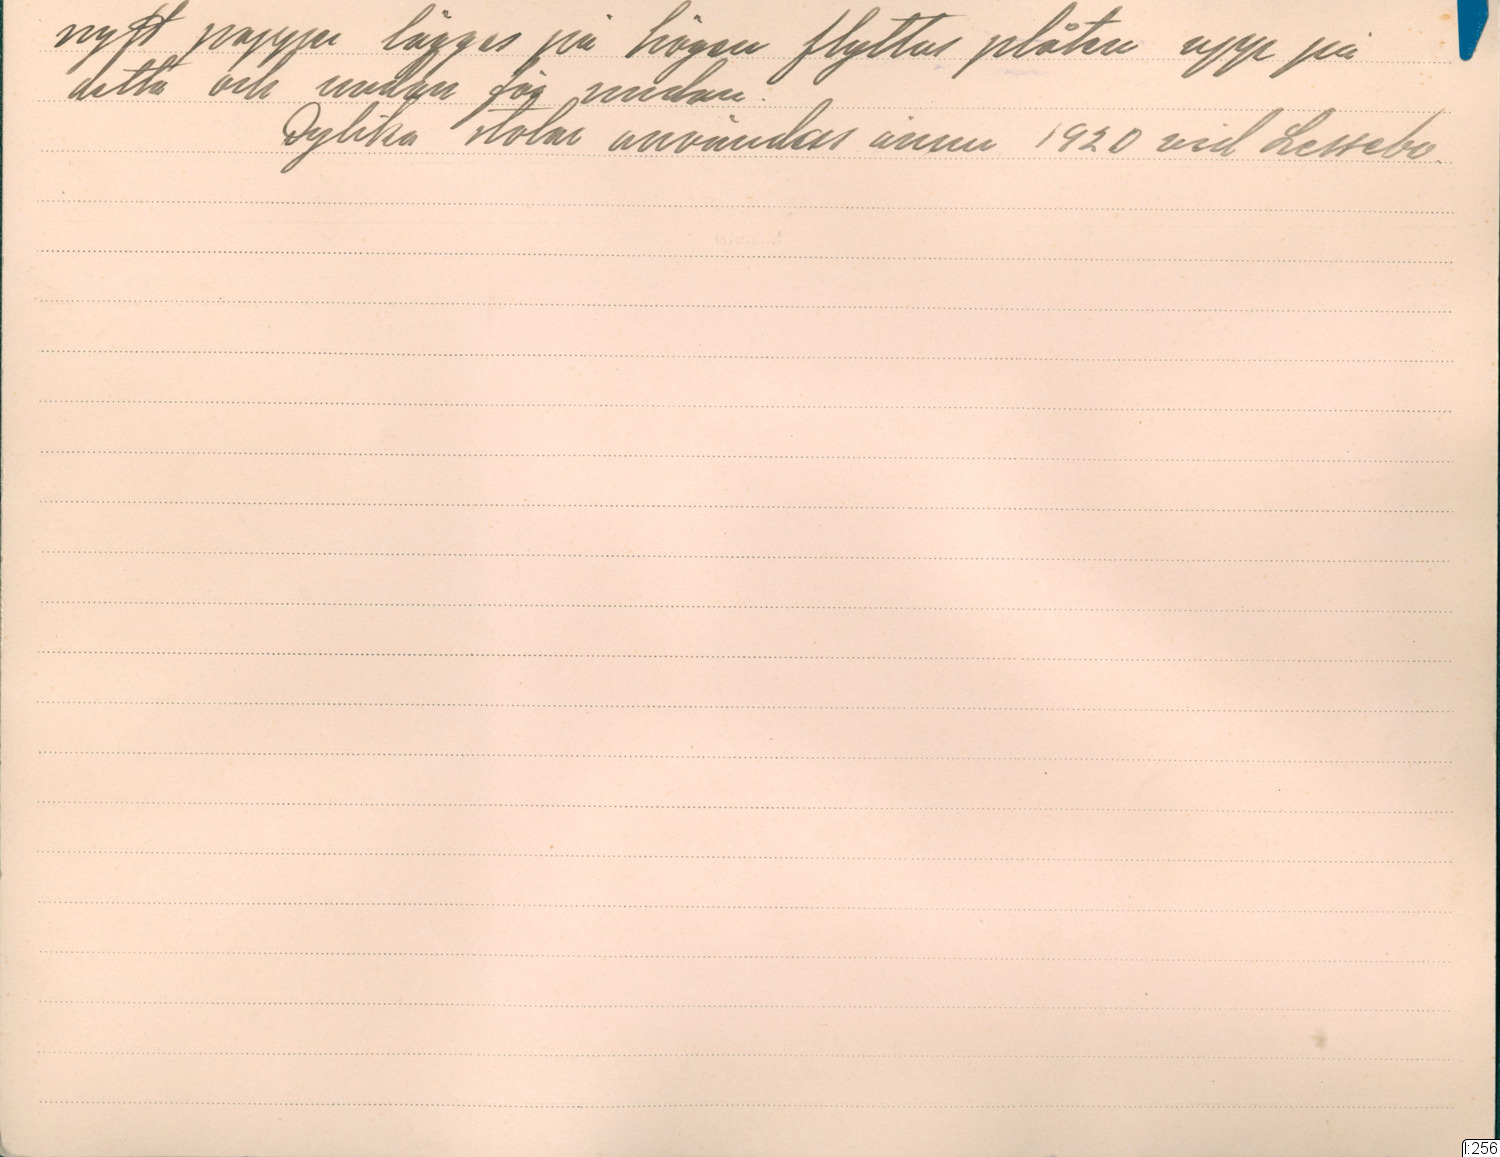 nytt papper lägges på högen flyttas plåten upp på
detta och undan för undan.
Dylika stolar användas ännu 1920 vid Lessebo.
I:256